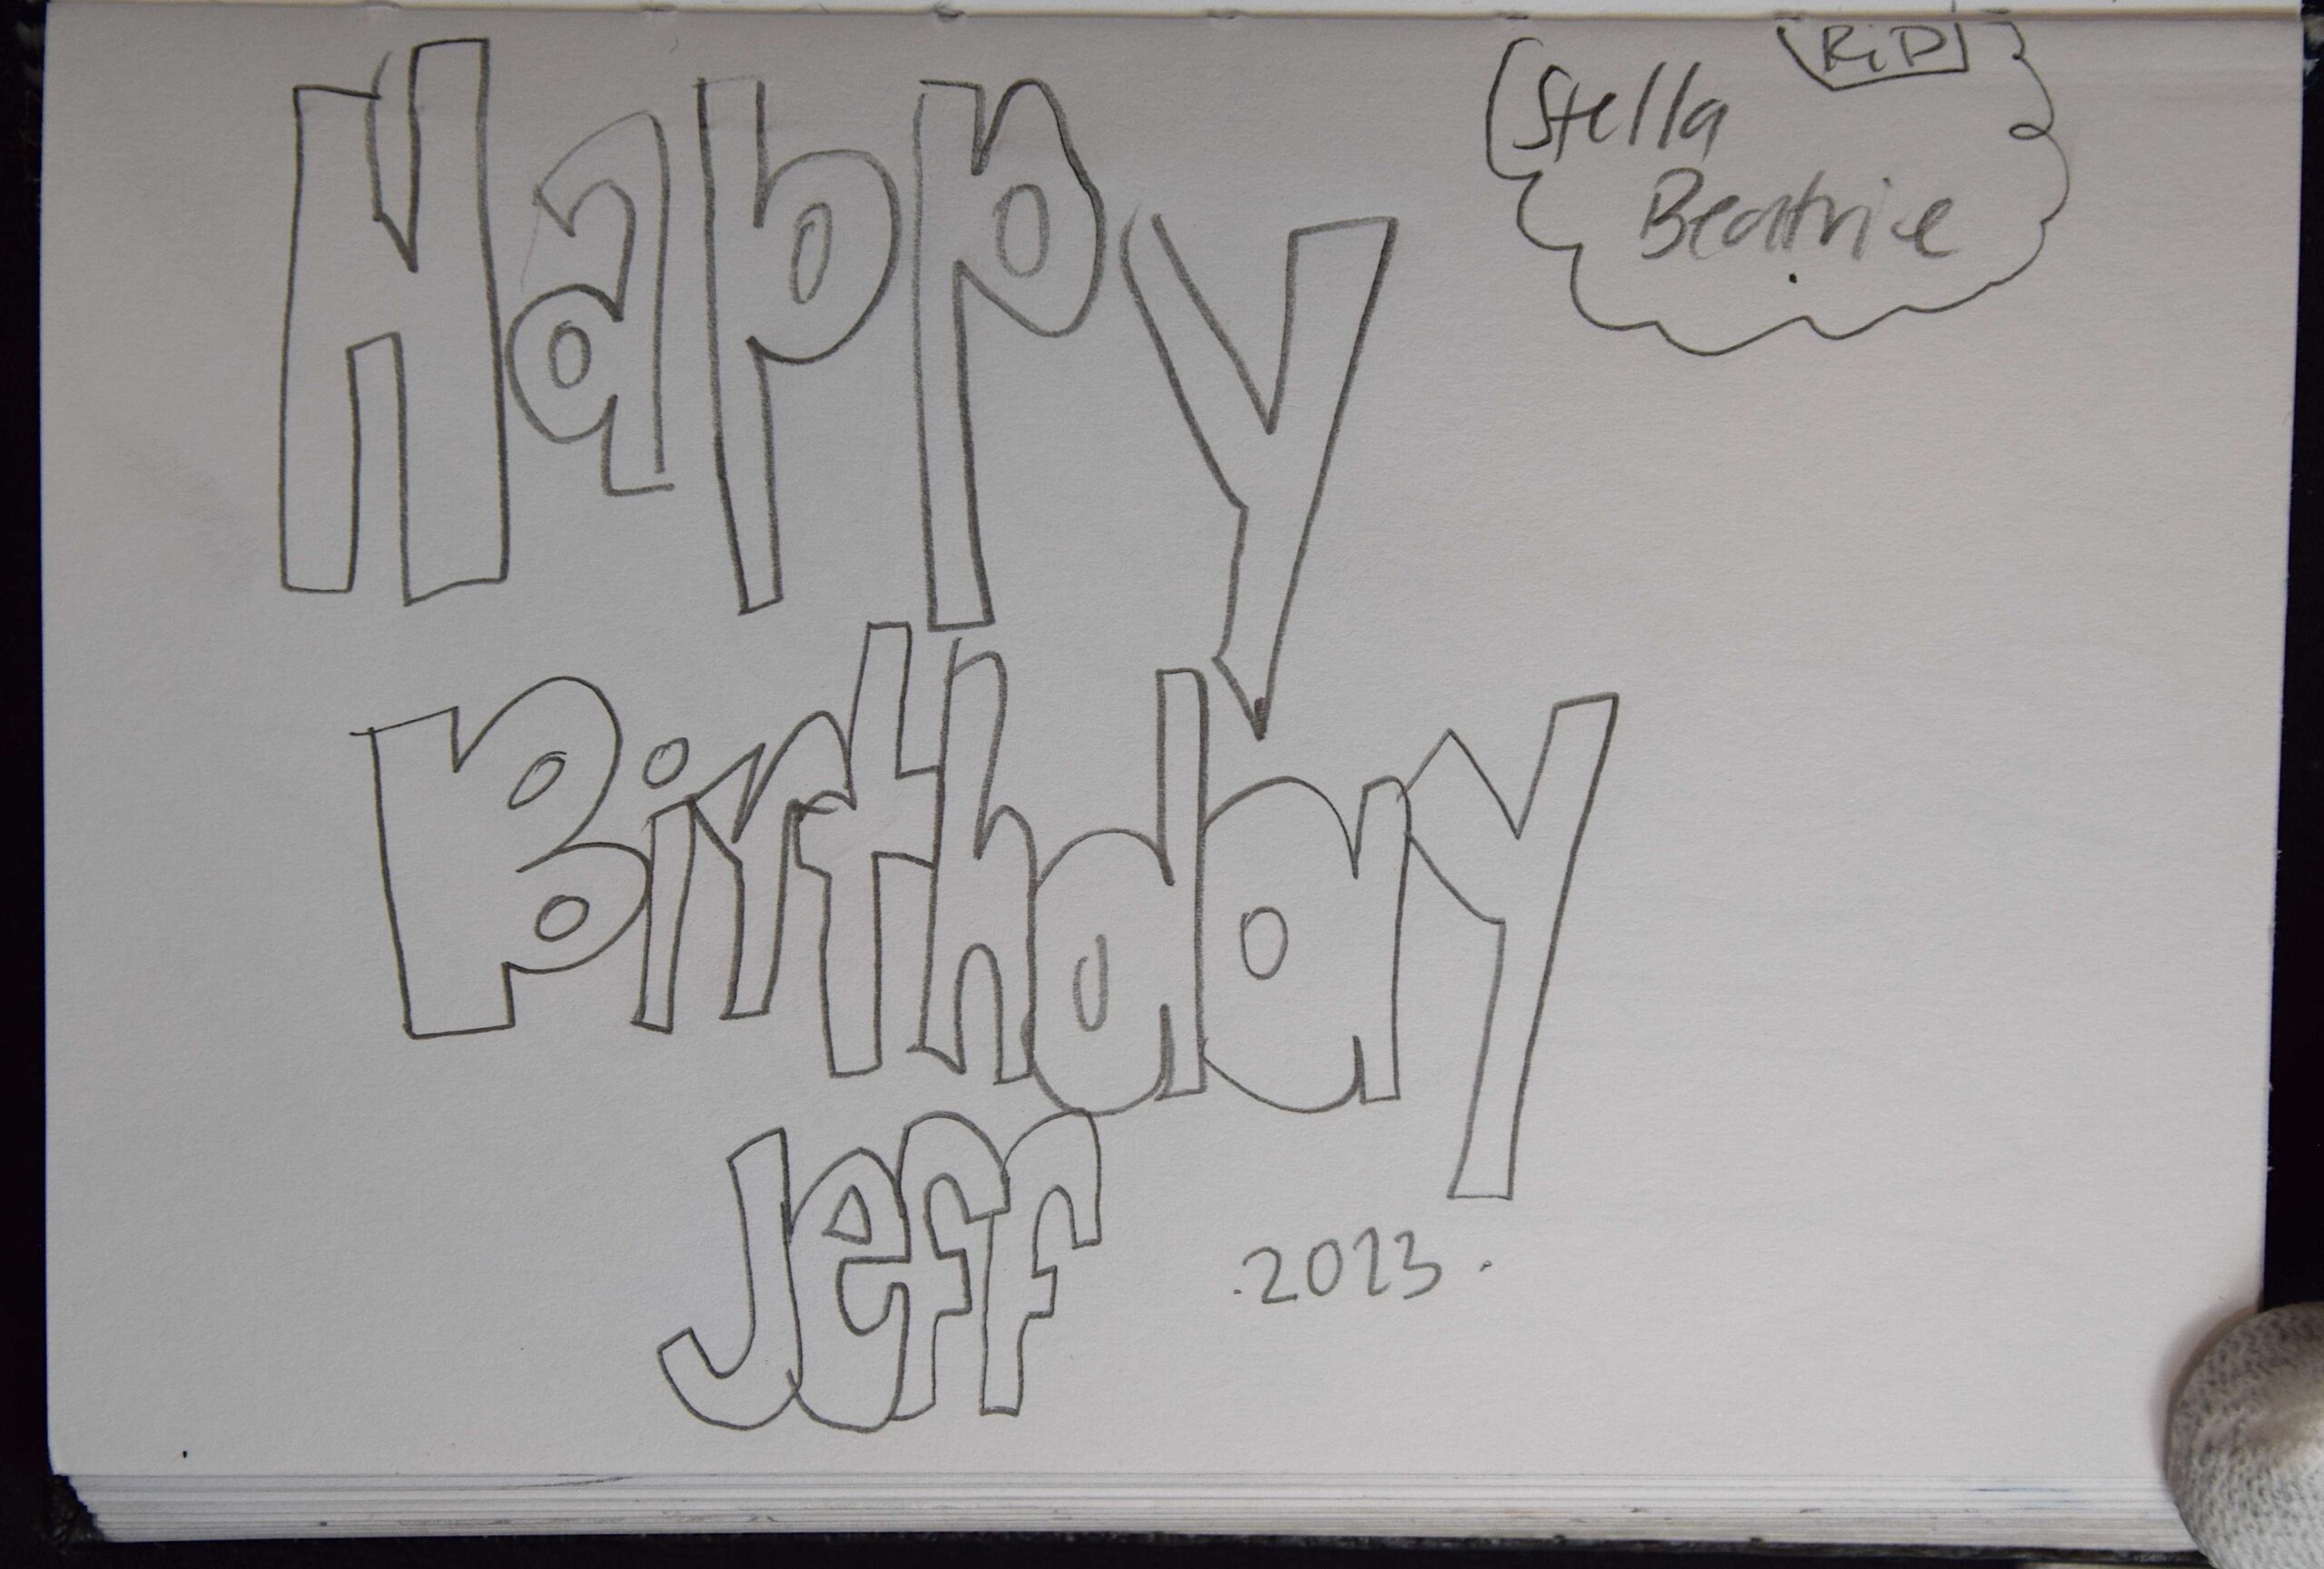 RiP
Stella
Beatrice
Happy
Birthday
Jeff
.2023.